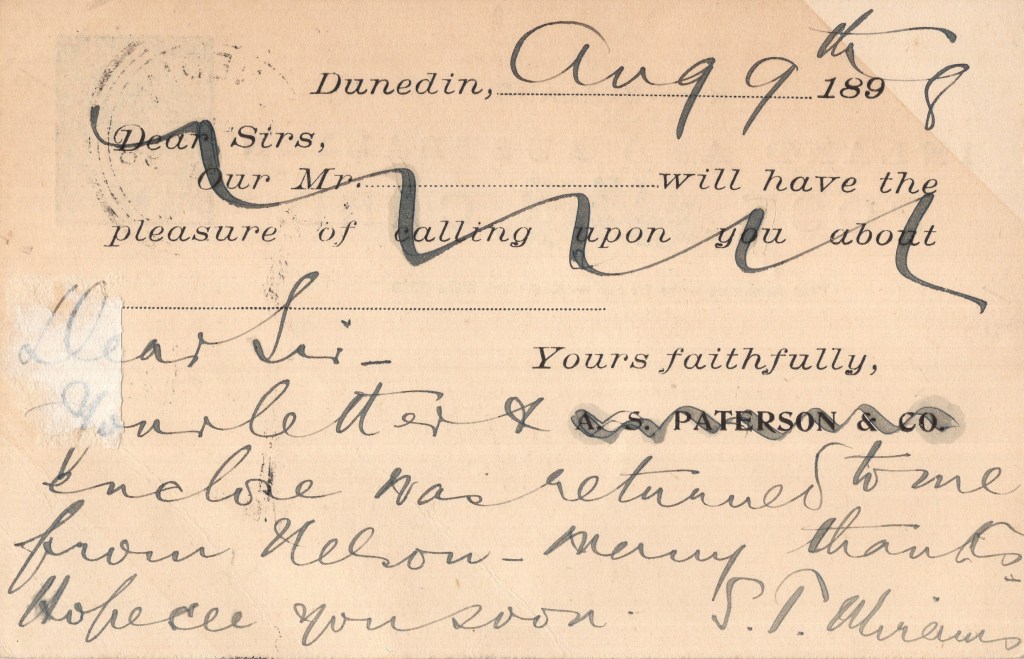 Dunedin, Aug 9th 1898
Dear Sirs,
Our Mr. will have the
pleasure of calling upon you about
Dear Sir -
Yours faithfully,
Your letter & A. S. PATERSON & CO.
enclose was returned to me
from Nelson - many thanks
Hope see you soon. S. T. Mirams